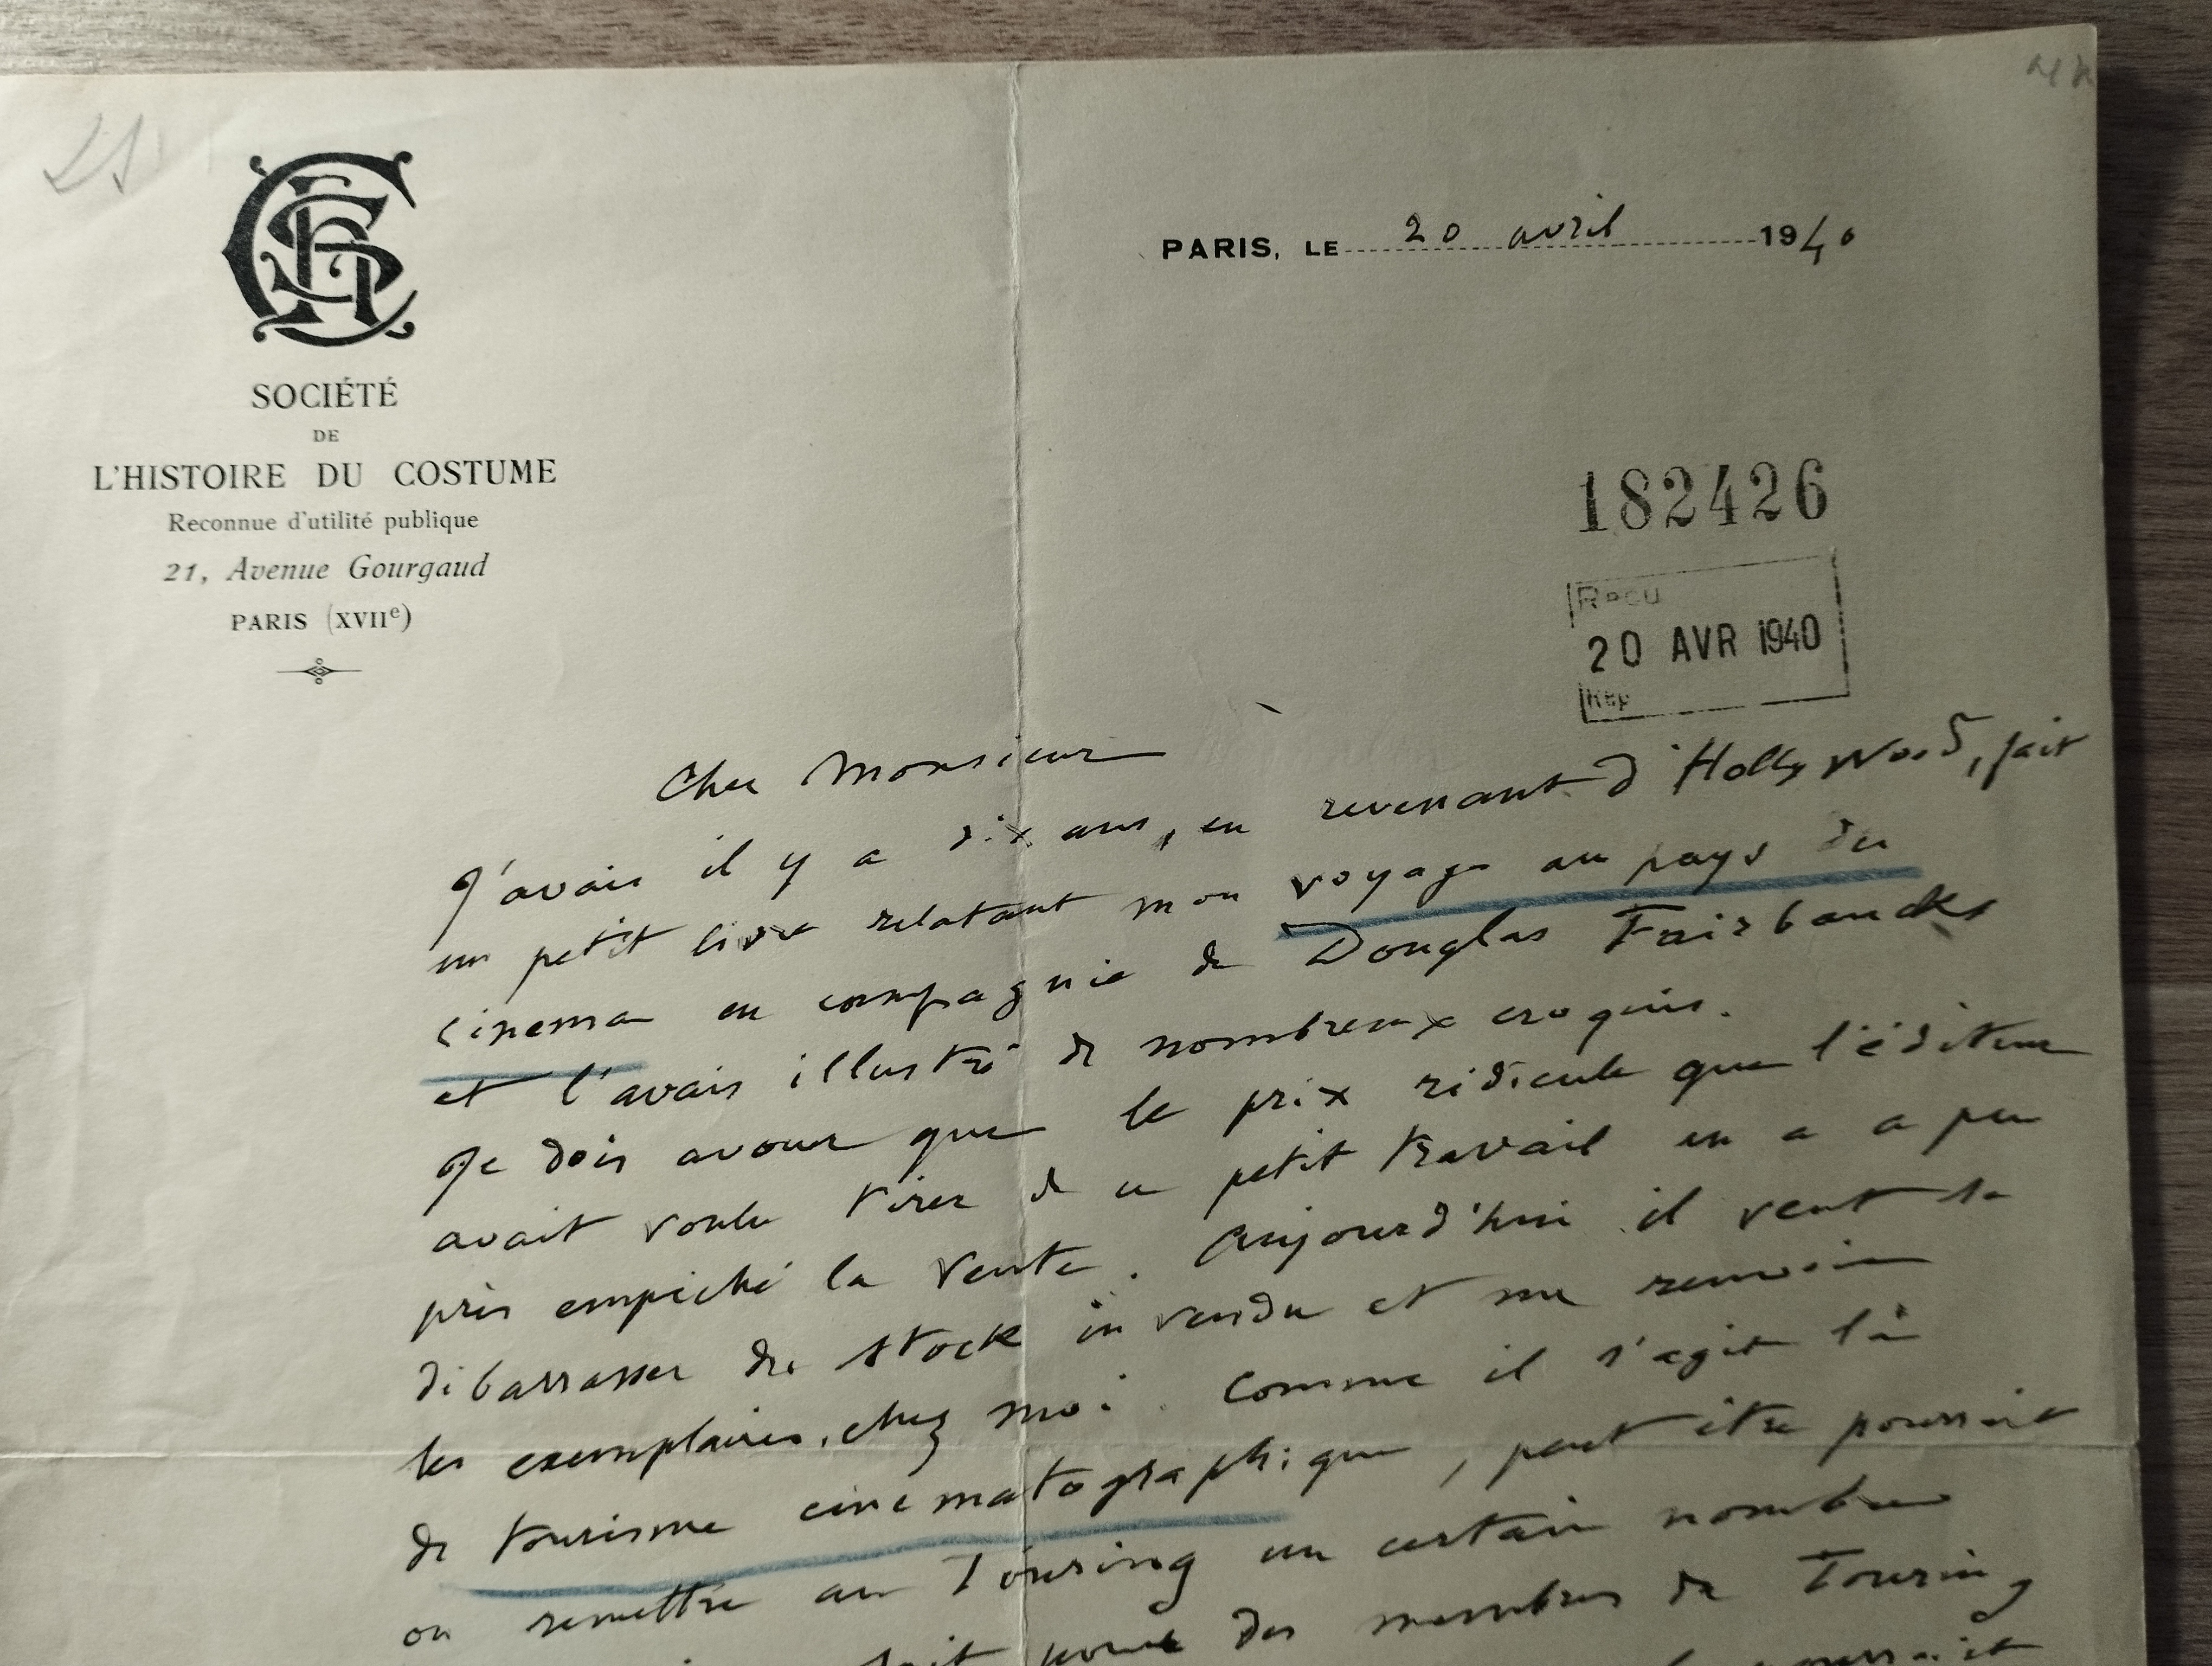 SOCIÉTÉ
DE
L'HISTOIRE DU COSTUME
Reconnue d'utilité publique
21, Avenue Gourgaud
PARIS (XVIIe)
PARIS, LE 20 avril 1940
182426
Reçu
20 AVR 1940
Rép
Cher Monsieur
J'avais il y a dix ans, en revenant d'Hollywood, fait
un petit livre relatant mon voyage au pays du
cinema en compagnie de Douglas Fairbancks
et l'avais illustré de nombreux croquis.
Je dois avouer que le prix ridicule que l'éditeur
avait voulu tirer de ce petit travail en a a peu
près empêché la vente. Aujourd'hui il veut se
débarrasser du stock invendu et me
les exemplaires, chez moi. Comme il s'agit là
de tourisme cinematographique, peut être pourrait
on remettre au Touring un certain nombre
des membres du Touring